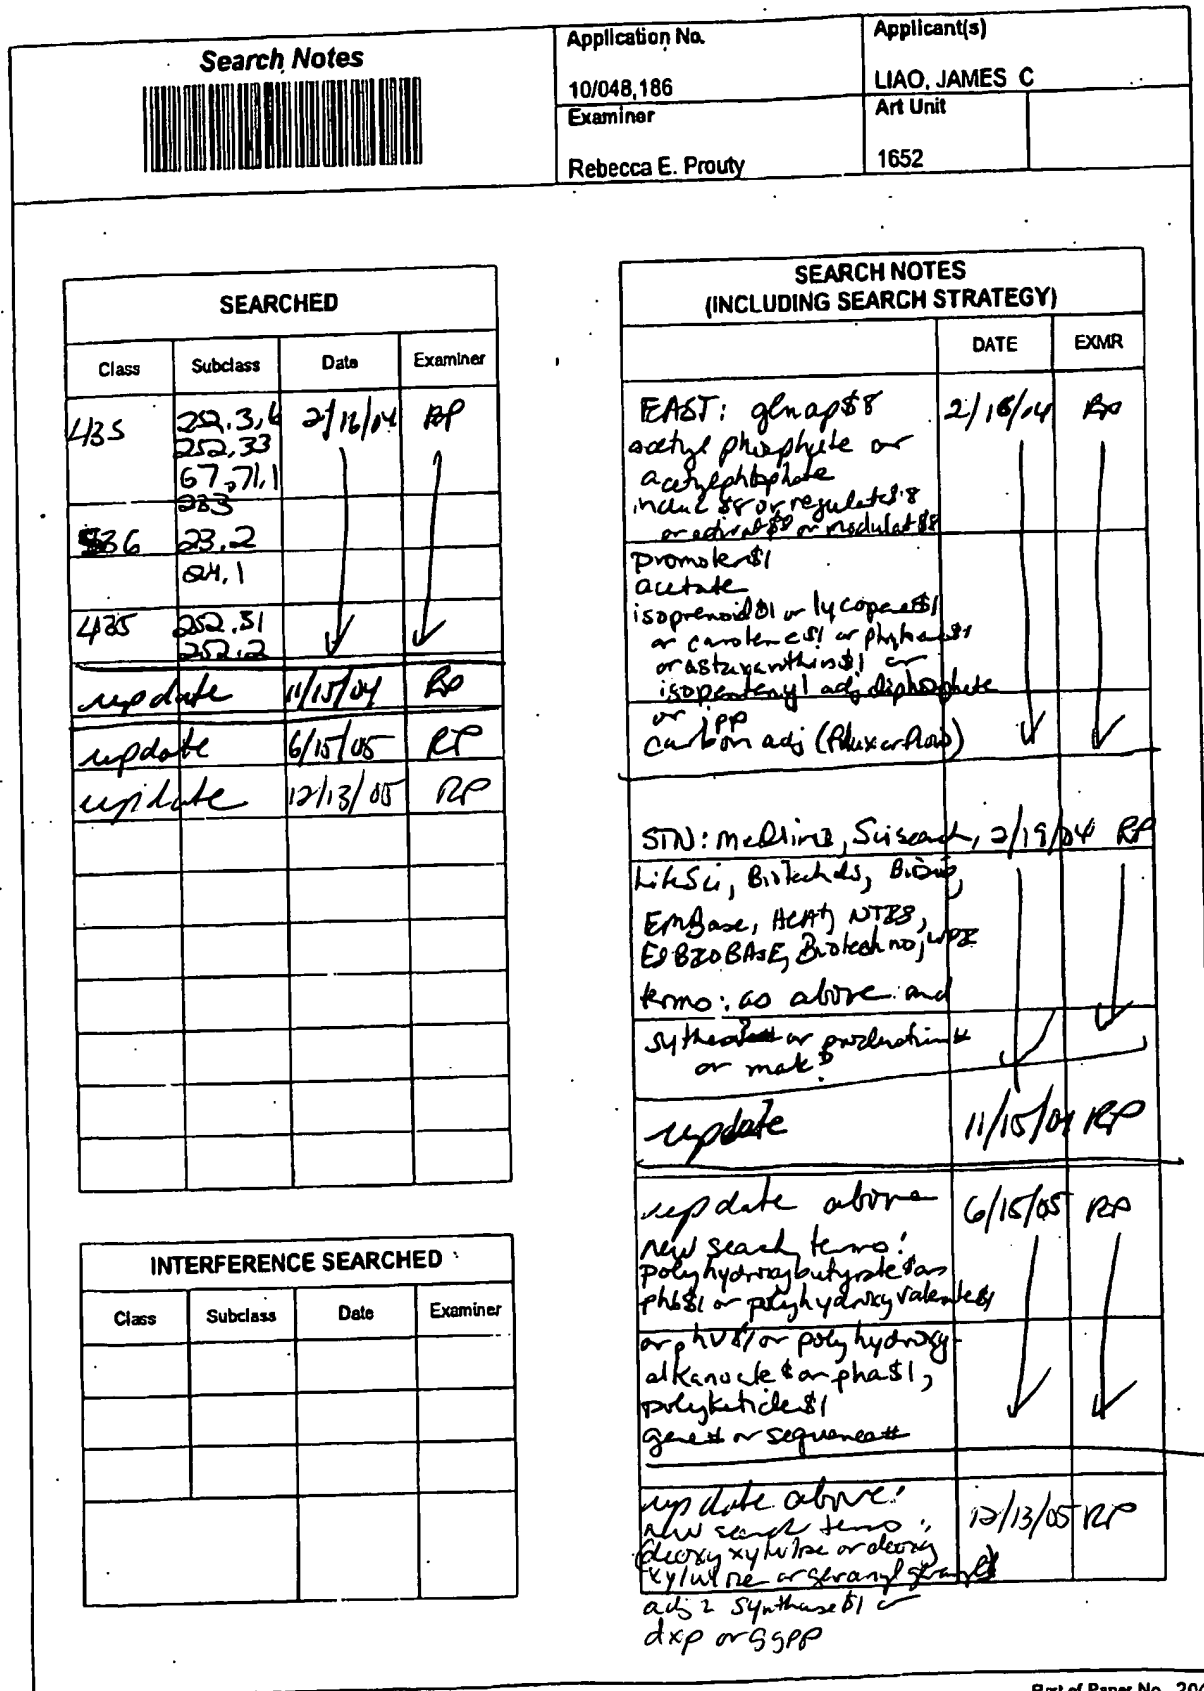 Search Notes
Application No.
10/048,186
Applicant(s)
LIAO, JAMES C
Examiner
Rebecca E. Prouty
Art Unit
1652
SEARCHED
Class Subclass Date Examiner
435 252.3, 6 2/18/04 RP
252.33
67, 71.1
233
536 23.2
24.1
435 252.31
252.2
update 11/15/04 RP
update 6/15/05 RP
update 12/13/05 RP
INTERFERENCE SEARCHED
Class Subclass Date Examiner
SEARCH NOTES
(INCLUDING SEARCH STRATEGY)
DATE EXMR
EAST: glnap$8 2/18/04 RP
acetyl phosphate or
acetylphosphate
induc$8 or regulat$8
or activat$8 or modulat$8
promoter$1
acetate
isoprenoid$1 or lycopene$1
or carotene$1 or
or astaxanthin$1 or
isopentenyl adj diphosphate
or ipp
carbon adj (flux or flow)
STN: Medline, Scisearch, 2/19/04 RP
LifeSci, Biotechds, Biosis,
EmBase, HCAPlus, NTIS,
ESBIOBASE, Biotechno, WPI
terms: as above and
or production#
or mak?
update 11/15/04 RP
update above 6/15/05 RP
new search terms:
polyhydroxybutyrate$ or
phb$1 or polyhydroxyvalerate$1
or phv$1 or polyhydroxy-
alkanoate$ or pha$1,
polyketide$1
gene# or sequence#
update above: 12/13/05 RP
new search terms:
(deoxyxylulose or deoxy
xylulose or geranylgeranyl)
adj2 synthase$1 or
dxp or ggpp
Part of Paper No.